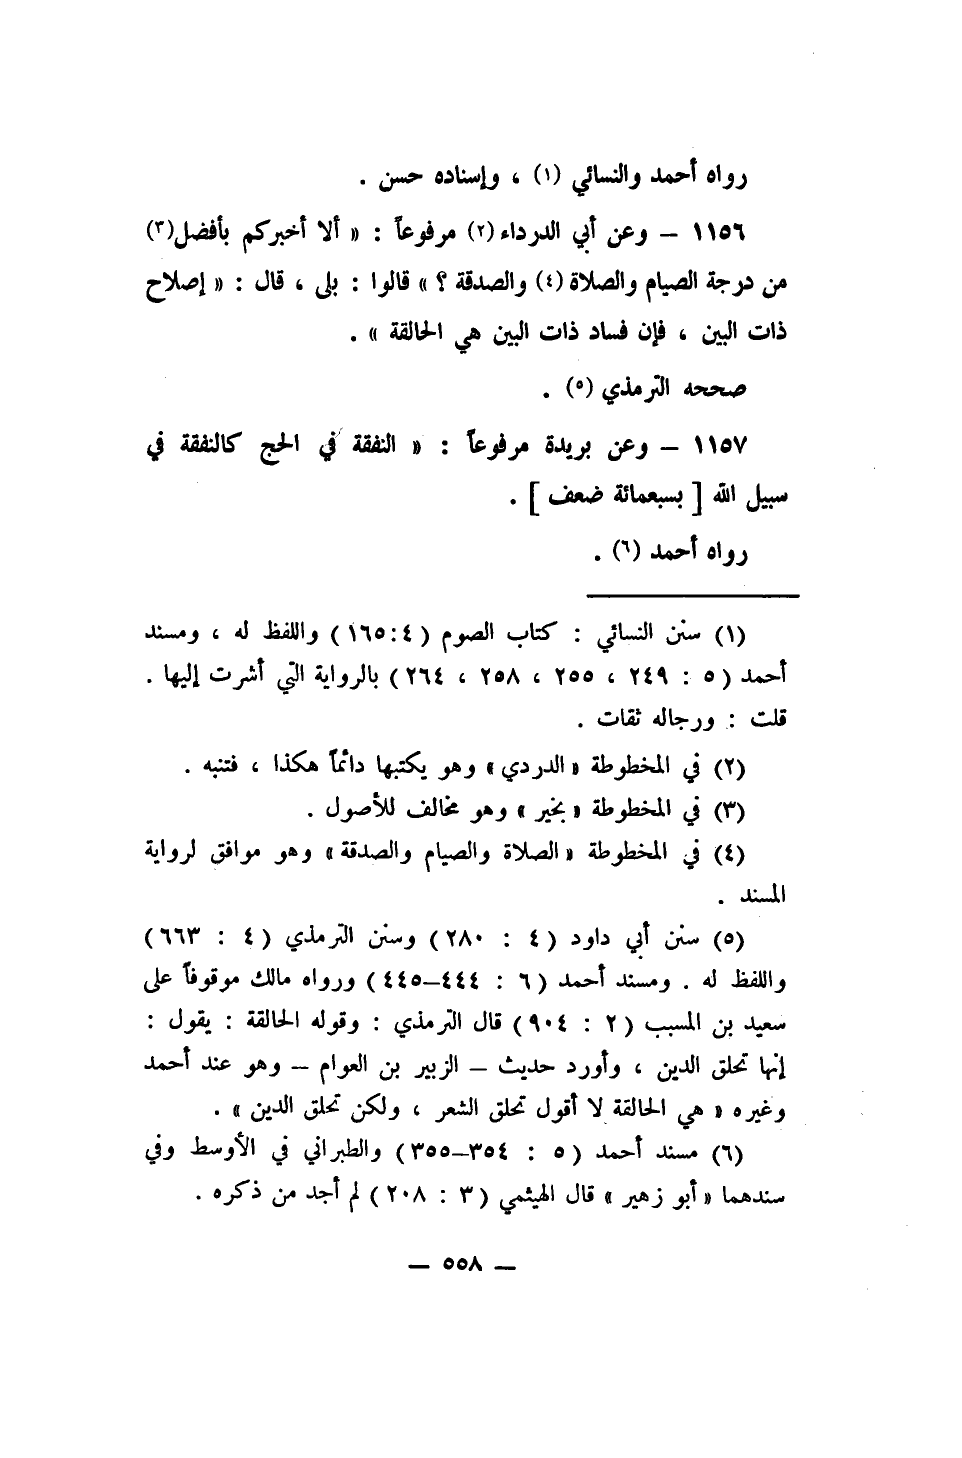 رواه أحمد والنسائي (١) ، وإسناده حسن .
١١٥٦ – وعن أبي الدرداء (٢) مرفوعاً : « ألا أخبركم بأفضل(٣)
من درجة الصيام والصلاة (٤) والصدقة ؟ » قالوا : بلى ، قال : « إصلاح
ذات البين ، فإن فساد ذات البين هي الحالقة » .
صححه الترمذي (٥) .
١١٥٧ – وعن بريدة مرفوعاً : « النفقة في الحج كالنفقة في
سبيل الله [ بسبعمائة ضعف ] .
رواه أحمد (٦) .
(١) سنن النسائي : كتاب الصوم ( ٤:١٦٥ ) واللفظ له ، ومسند
أحمد ( ٥ : ٢٤٩ ، ٢٥٥ ، ٢٥٨ ، ٢٦٤ ) بالرواية التي أشرت إليها .
قلت : ورجاله ثقات .
(٢) في المخطوطة «الدردي» وهو يكتبها دائماً هكذا ، فتنبه .
(٣) في المخطوطة « بخير » وهو مخالف للأصول .
(٤) في المخطوطة «الصلاة والصيام والصدقة» وهو موافق لرواية
المسند .
(٥) سنن أبي داود ( ٤ : ٢٨٠ ) وسنن الترمذي ( ٤ : ٦٦٣ )
واللفظ له . ومسند أحمد ( ٦ : ٤٤٤–٤٤٥ ) ورواه مالك موقوفاً على
سعيد بن المسبب ( ٢ : ٩٠٤ ) قال الترمذي : وقوله الحالقة : يقول :
إنها تحلق الدين ، وأورد حديث – الزبير بن العوام – وهو عند أحمد
وغيره « هي الحالقة لا أقول تحلق الشعر ، ولكن تحلق الدين » .
(٦) مسند أحمد ( ٥ : ٣٥٤–٣٥٥ ) والطبراني في الأوسط وفي
سندهما « أبو زهير » قال الهيثمي ( ٣ : ٢٠٨ ) لم أجد من ذكره .
– ٥٥٨ –